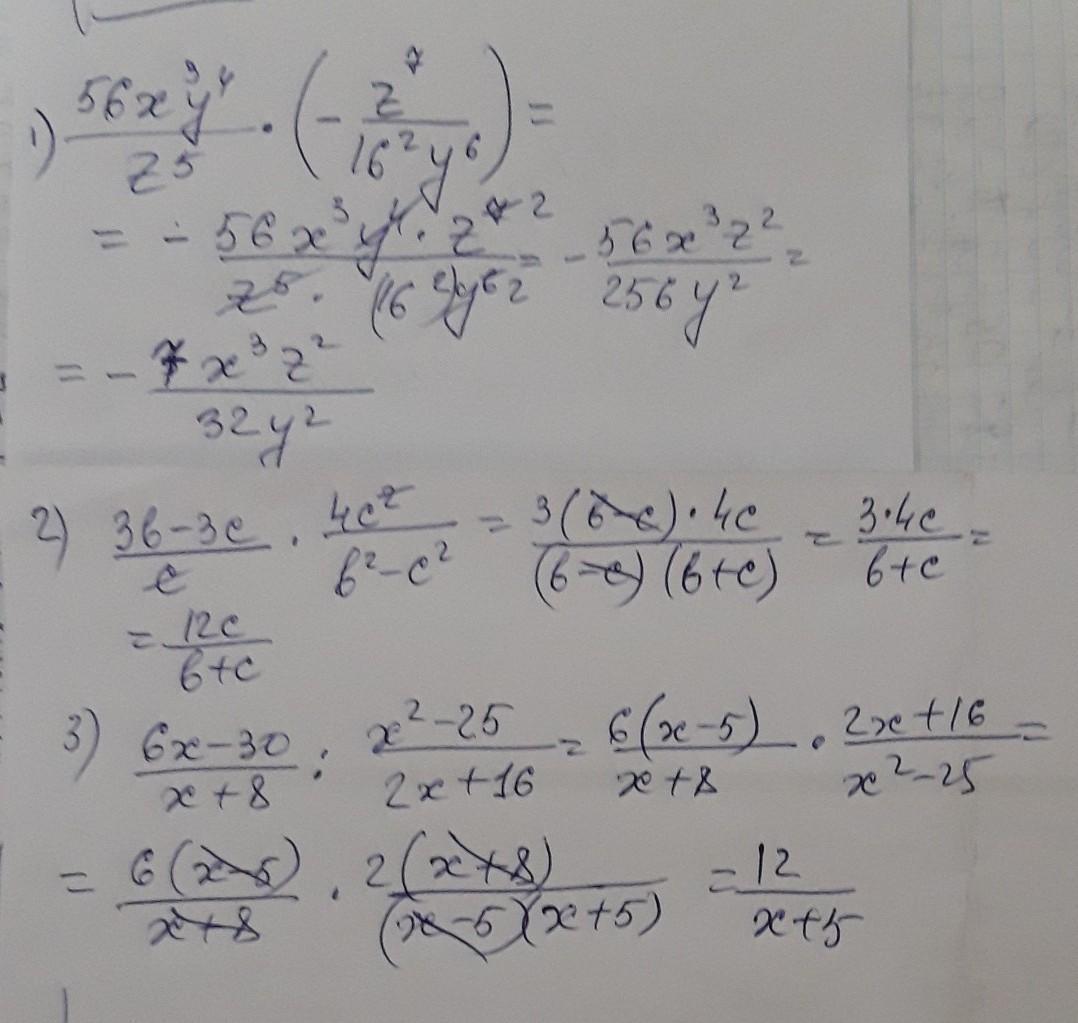 1) 56x³y⁴/z⁵ · (- z⁷/16²y⁶) =
= - 56x³y⁴ · z⁷ 2/z⁵ · (16²)y⁶ 2 = - 56x³z²/256y² =
= - 7x³z²/32y²
2) 3b-3c/c · 4c²/b²-c² = 3(b-c)·4c/(b-c)(b+c) = 3·4c/b+c =
= 12c/b+c
3) 6x-30/x+8 : x²-25/2x+16 = 6(x-5)/x+8 · 2x+16/x²-25 =
= 6(x-5)/x+8 · 2(x+8)/(x-5)(x+5) = 12/x+5